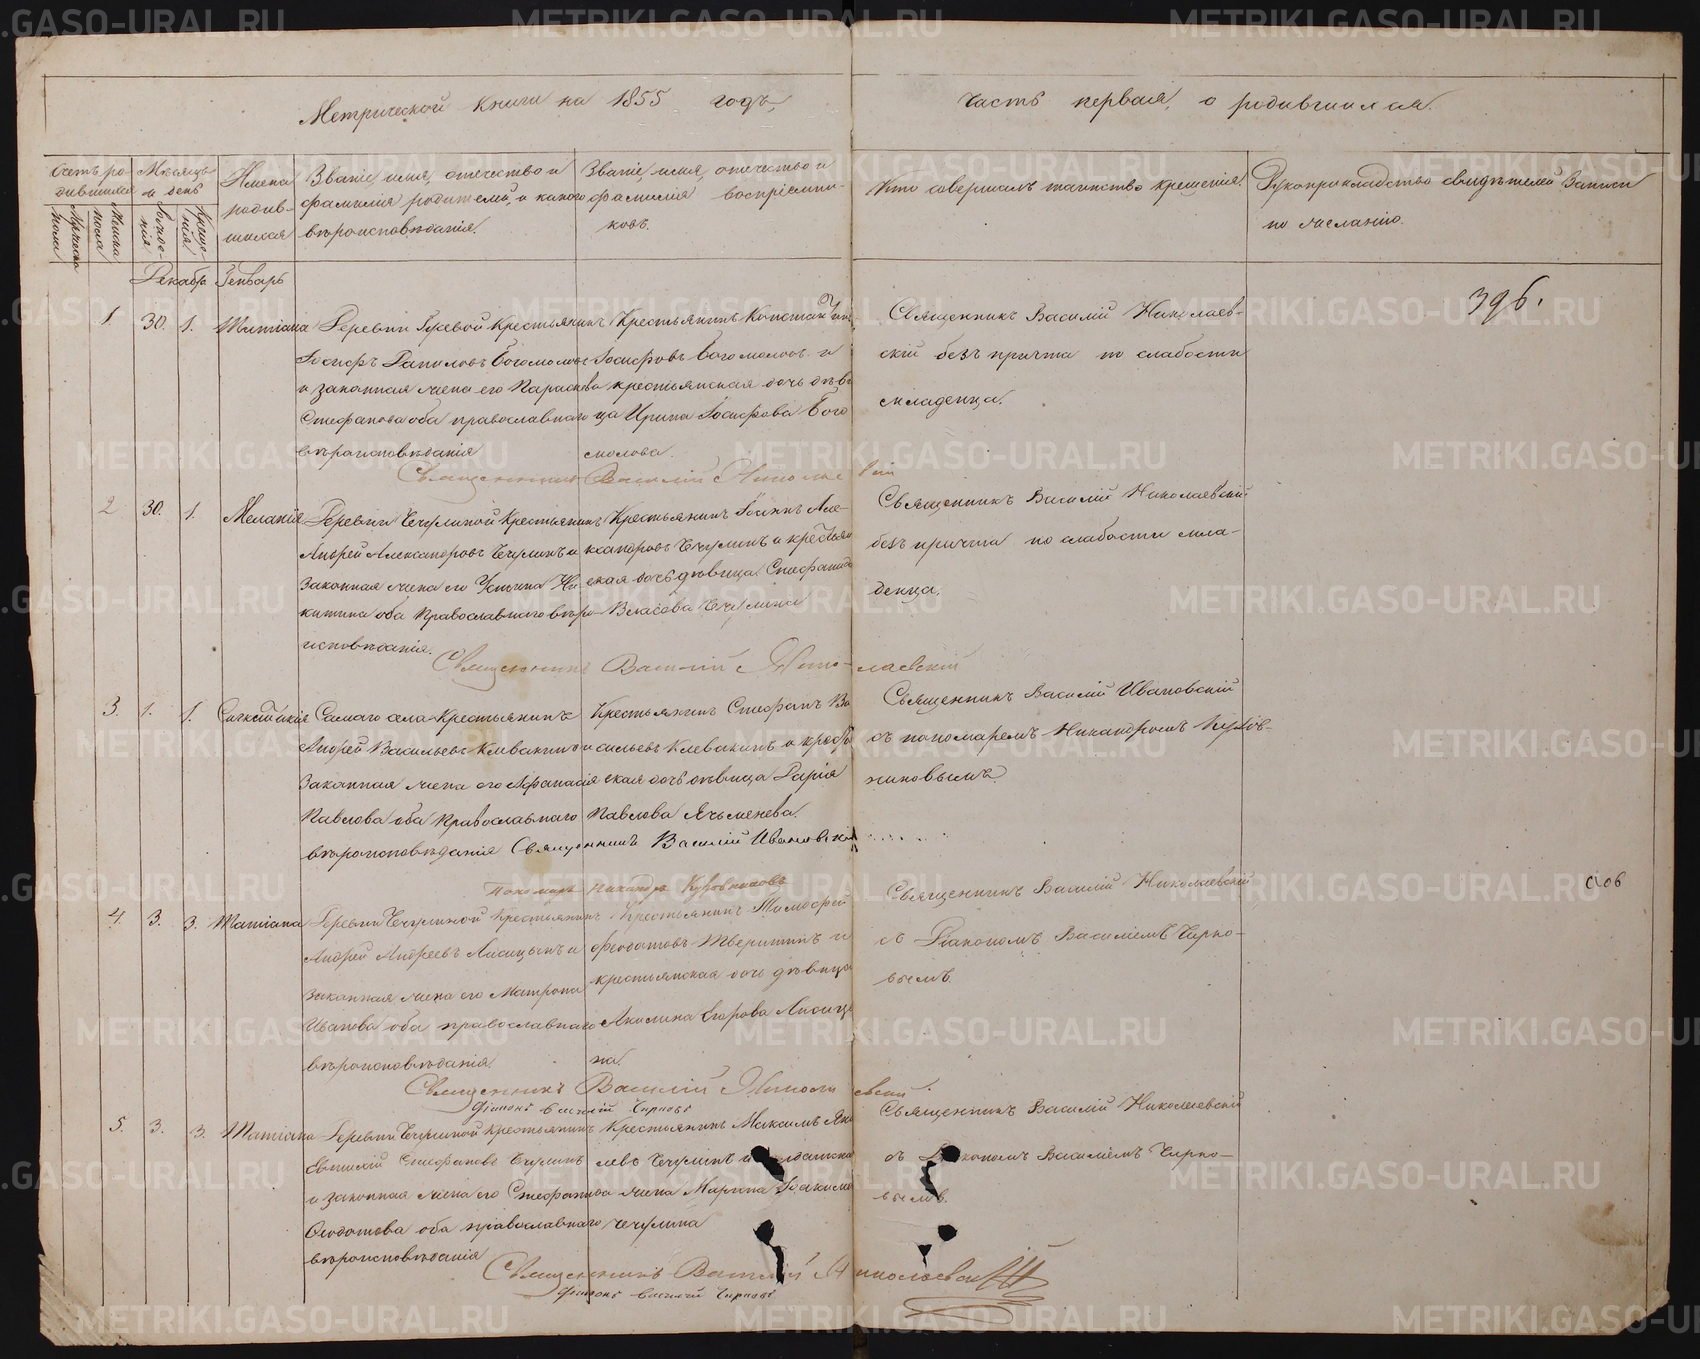 Метрической книги на 1855 годъ,
Часть первая, о родившихся.
Счетъ родившихся
Мужеска пола
Женска пола
Мѣсяцъ и день
Рожденія
Крещенія
Имена родившихся
Званіе, имя, отчество и
фамилія родителей, и какого
вѣроисповѣданія.
Званіе, имя, отчество и
фамилія воспріемни-
ковъ.
Кто совершалъ таинство крещенія.
Рукоприкладство свидѣтелей записи
по желанію.
Декабр. Генварь
396.
1 30. 1. Татіана
Деревни Гусевой Крестьянинъ
Іосифъ Богомоловъ
и законная жена его Параскева
Стефанова оба православнаго
вѣроисповѣданія
Крестьянинъ Константинъ
Іосифовъ Богомоловъ и
крестьянская дочь дѣви
ца Ирина Іосифова Бого
молова.
Священникъ Василій Николаев-
скій безъ причта по слабости
младенца.
Священникъ Василій Николаевскій
2 30. 1. Меланія
Деревни Чечулиной Крестьянинъ
Андрей Александровъ Чечулинъ и
законная жена его Устина Ни
китина оба Православнаго вѣро-
исповѣданія.
Крестьянинъ Іоаннъ Але-
ксандровъ Чечулинъ и крестьян
ская дочь дѣвица Стефанида
Власова Чечулина
Священникъ Василій Николаевскій
безъ причта по слабости мла-
денца.
Священникъ Василій Николаевскій
3. 1. 1. Синклитикія
Самаго села Крестьянинъ
Андрей Васильевъ Клевакинъ и
Законная жена его Афанасія
Павлова оба Православнаго
вѣроисповѣданія
Крестьянинъ Стефанъ Ва
сильевъ Клевакинъ и крестьян
ская дочь дѣвица Дарія
Павлова Ячменева.
Священникъ Василій Ивановскій
съ пономаремъ Никандромъ Куров-
никовымъ
Священникъ Василій Ивановскій
Пономарь Никандръ Куровниковъ
4. 3. 3. Татіана
Деревни Чечулиной Крестьянинъ
Андрей Андреевъ Лисицынъ и
законная жена его Матрона
Иванова оба православнаго
вѣроисповѣданія.
Крестьянинъ Тимофей
Феодотовъ Тверитинъ и
крестьянская дочь дѣвица
Акилина Егорова Лисицы
на.
Священникъ Василій Николаевскій
съ Діакономъ Василіемъ Чирко-
вымъ.
Священникъ Василій Николаевскій
Діаконъ Василій Чирковъ
5. 3. 3. Татіана
Деревни Чечулиной Крестьянинъ
Стефановъ Чечулинъ
и законная жена его Стефанида
Ѳеодотова оба православнаго
вѣроисповѣданія
Крестьянинъ Максимъ Яко
левъ Чечулинъ и
жена Марина
Чечулина
Священникъ Василій Николаевскій
съ Діакономъ Василіемъ Чирко-
вымъ.
Священникъ Василій Николаевскій
Діаконъ Василій Чирковъ
METRIKI.GASO-URAL.RU